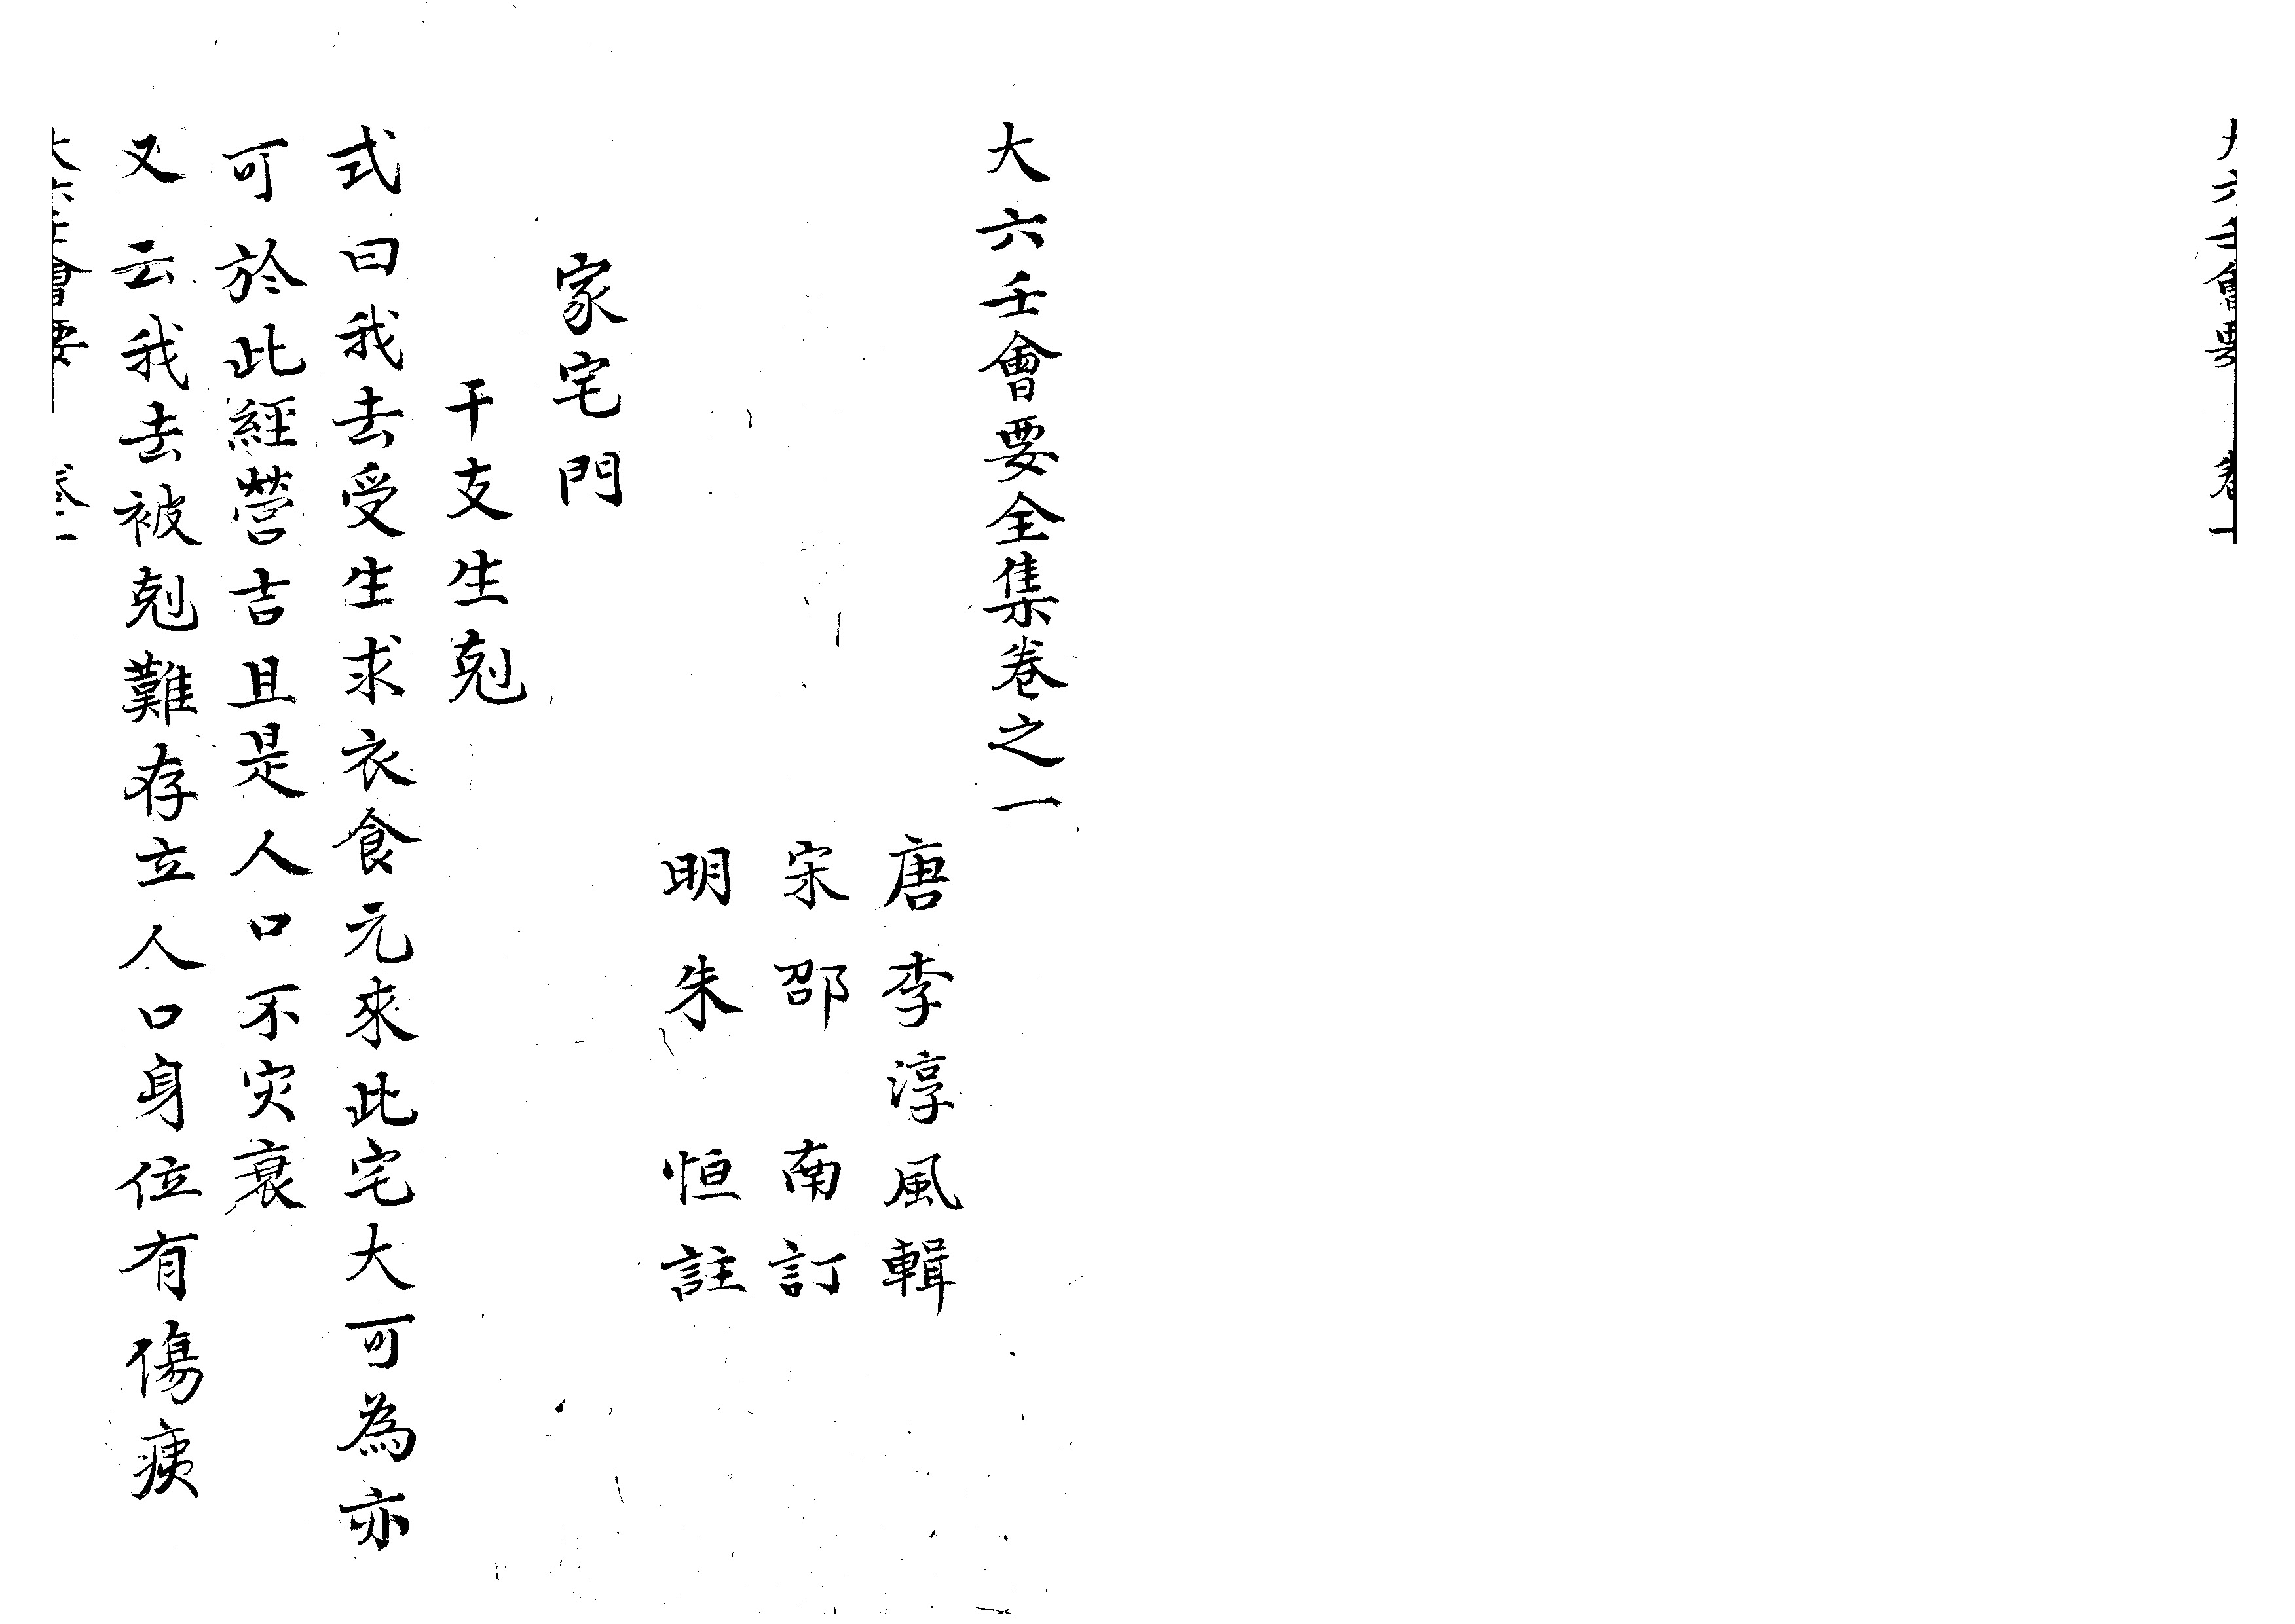 大六壬會要 卷一
大六壬會要全集卷之一
唐李淳風輯
宋邵 南訂
明朱 恒註
家宅門
干支生剋
式曰我去受生求衣食元來此宅大可為亦
可於此經營吉且是人口不灾衰
又云我去被剋難存立人口身位有傷痍
大六壬會要 卷一